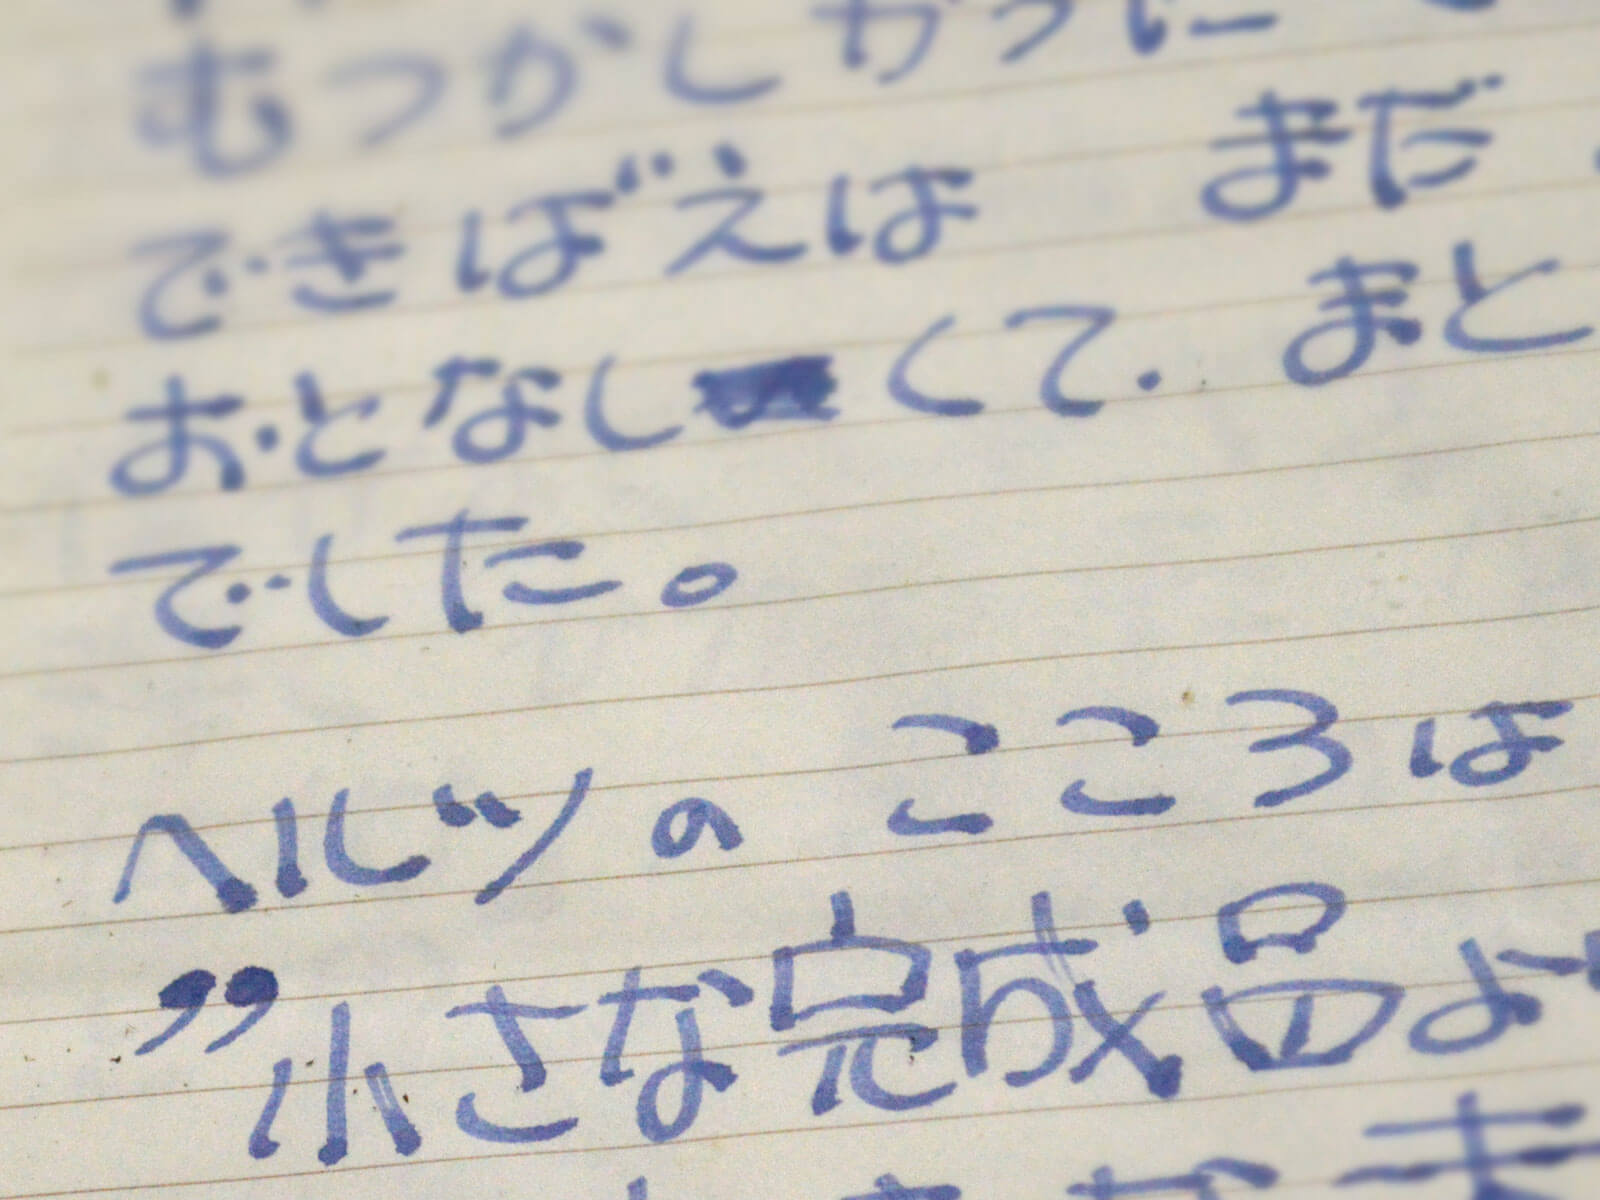 むつかしかった
できばえは まだ
おとなしくて、まと
でした。
ヘルツの こころは
”小さな完成品よ